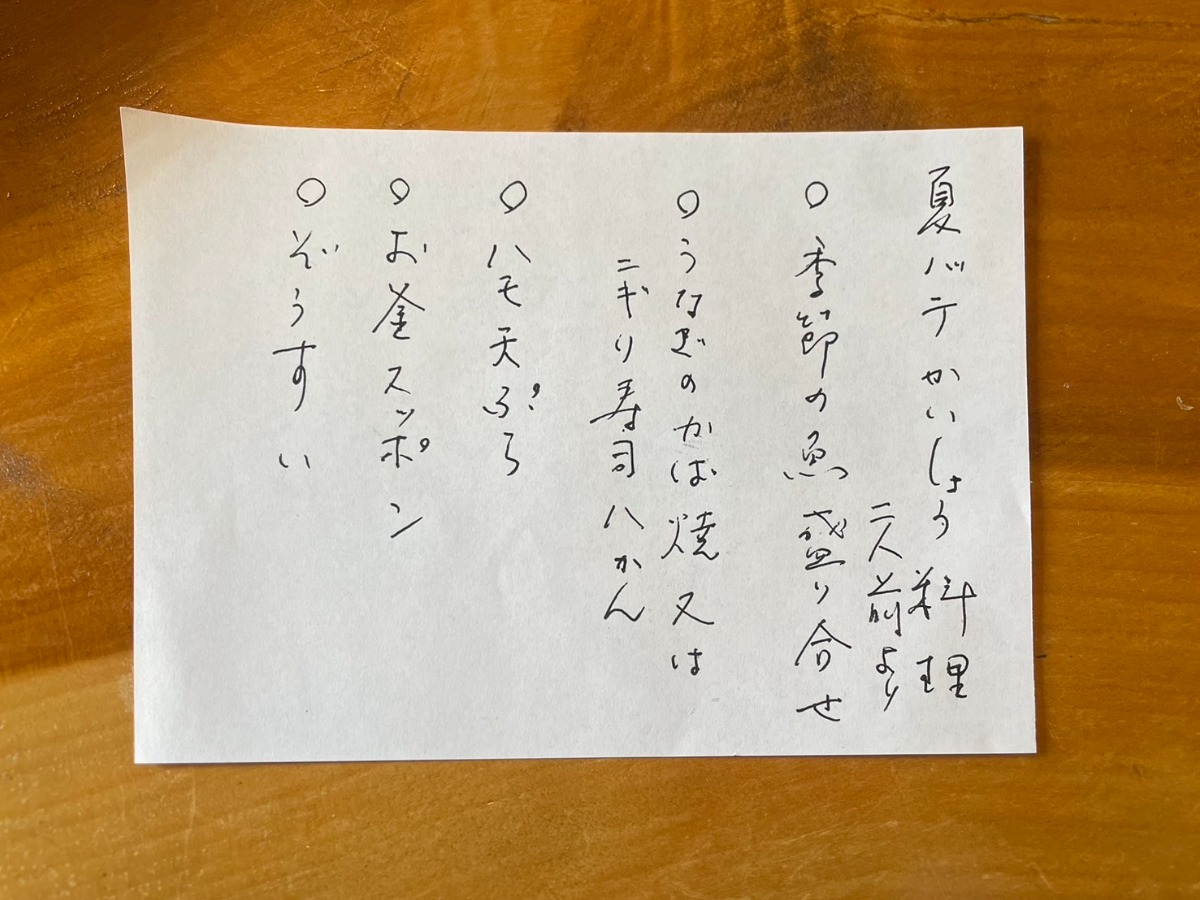 夏バテかいしょう料理
二人前より
○季節の魚盛り合せ
○うなぎのかば焼又は
ニギリ寿司八かん
○ハモ天ぷら
○お釜スッポン
○ぞうすい